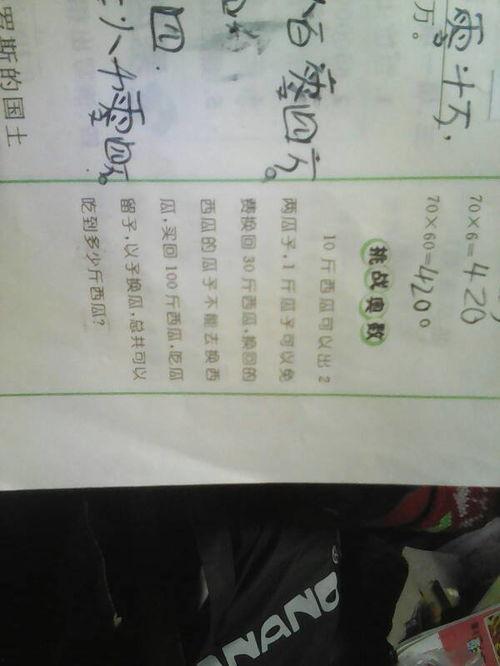 万。
八百零四万。
四.
罗斯的国土
70×6=420
70×60=4200
挑战奥数
10 斤西瓜可以出 2
两瓜子,1 斤瓜子可以免
费换回 30 斤西瓜,换回的
西瓜的瓜子不能去换西
瓜,买回 100 斤西瓜,吃瓜
留子,以子换瓜,总共可以
吃到多少斤西瓜?
NANO